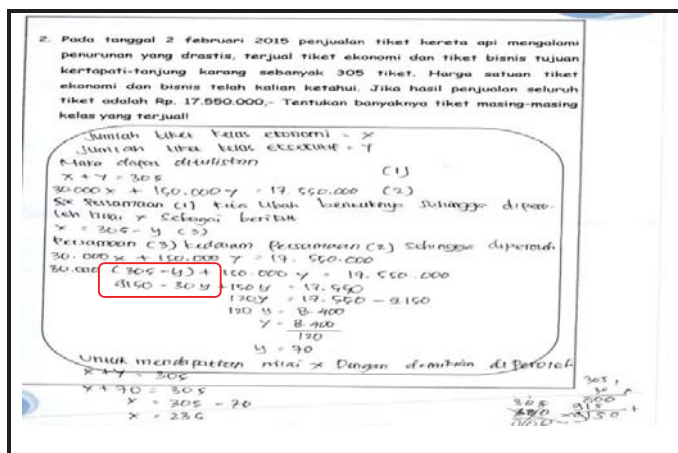 2. Pada tanggal 2 februari 2015 penjualan tiket kereta api mengalami
penurunan yang drastis, terjual tiket ekonomi dan tiket bisnis tujuan
kertapati-tanjung karang sebanyak 305 tiket. Harga satuan tiket
ekonomi dan bisnis telah kalian ketahui. Jika hasil penjualan seluruh
tiket adalah Rp. 17.550.000,- Tentukan banyaknya tiket masing-masing
kelas yang terjual!
Jumlah tiket kelas ekonomi = x
Jumlah tiket kelas eksekutif = y
Maka dapat dituliskan
x + y = 305 (1)
30.000 x + 150.000 y = 17.550.000 (2)
Persamaan (1) kita Ubah bentuknya Sehingga dipero-
leh nilai x Sebagai berikut
x = 305 - y (3)
Persamaan (3) kedalam Persamaan (2) Sehingga diperoleh
30.000 x + 150.000 y = 17.550.000
30.000 (305 - y) + 150.000 y = 17.550.000
9150 - 30 y + 150 y = 17.550
120 y = 17.550 - 9.150
120 y = 8.400
y = 8.400
120
y = 70
Untuk mendapatkan nilai x Dengan demikian diperoleh
x + y = 305
x + 70 = 305
x = 305 - 70
x = 235
305
30
000
915
9150 +
305